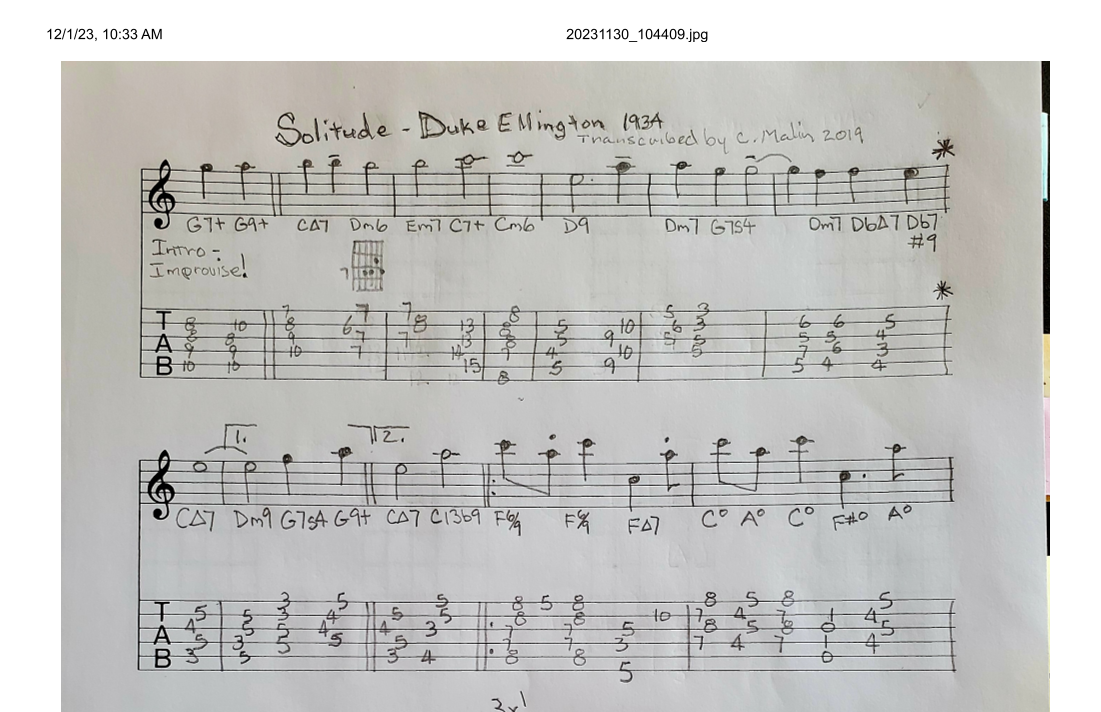 12/1/23, 10:33 AM 20231130_104409.jpg
Solitude - Duke Ellington 1934
Transcribed by C. Malin 2019
G7+ G9+ CΔ7 Dm6 Em7 C7+ Cm6 D9 Dm7 G7s4 Dm7 DbΔ7 Db7
#9
Intro -
Improvise!
7
7 7 7 8 5 3
8 10 8 6 8 13 8 5 10 6 3 6 6 5
8 8 9 7 7 13 8 5 9 5 5 5 5 4
9 9 10 7 14 7 4 10 5 7 6 3
10 10 15 5 9 5 4 4
8
T
A
B
1. 2.
CΔ7 Dm9 G7s4 G9+ CΔ7 C13b9 F6/9 F6/9 FΔ7 C° A° C° F#° A°
3 5 5 8 5 8 8 5 8 5
5 5 3 4 5 5 8 8 10 7 4 7 1 4
4 5 5 4 4 3 7 7 5 8 5 8 0 5
5 3 5 5 5 7 7 3 7 4 7 1 4
3 5 3 4 8 8 0
5
T
A
B